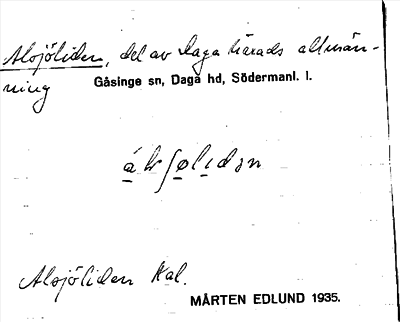 Alsjöliden, del av Daga härads allmän-
ning
Gåsinge sn, Daga hd, Södermanl. l.
Alsjöliden Kal.
MÅRTEN EDLUND 1935.